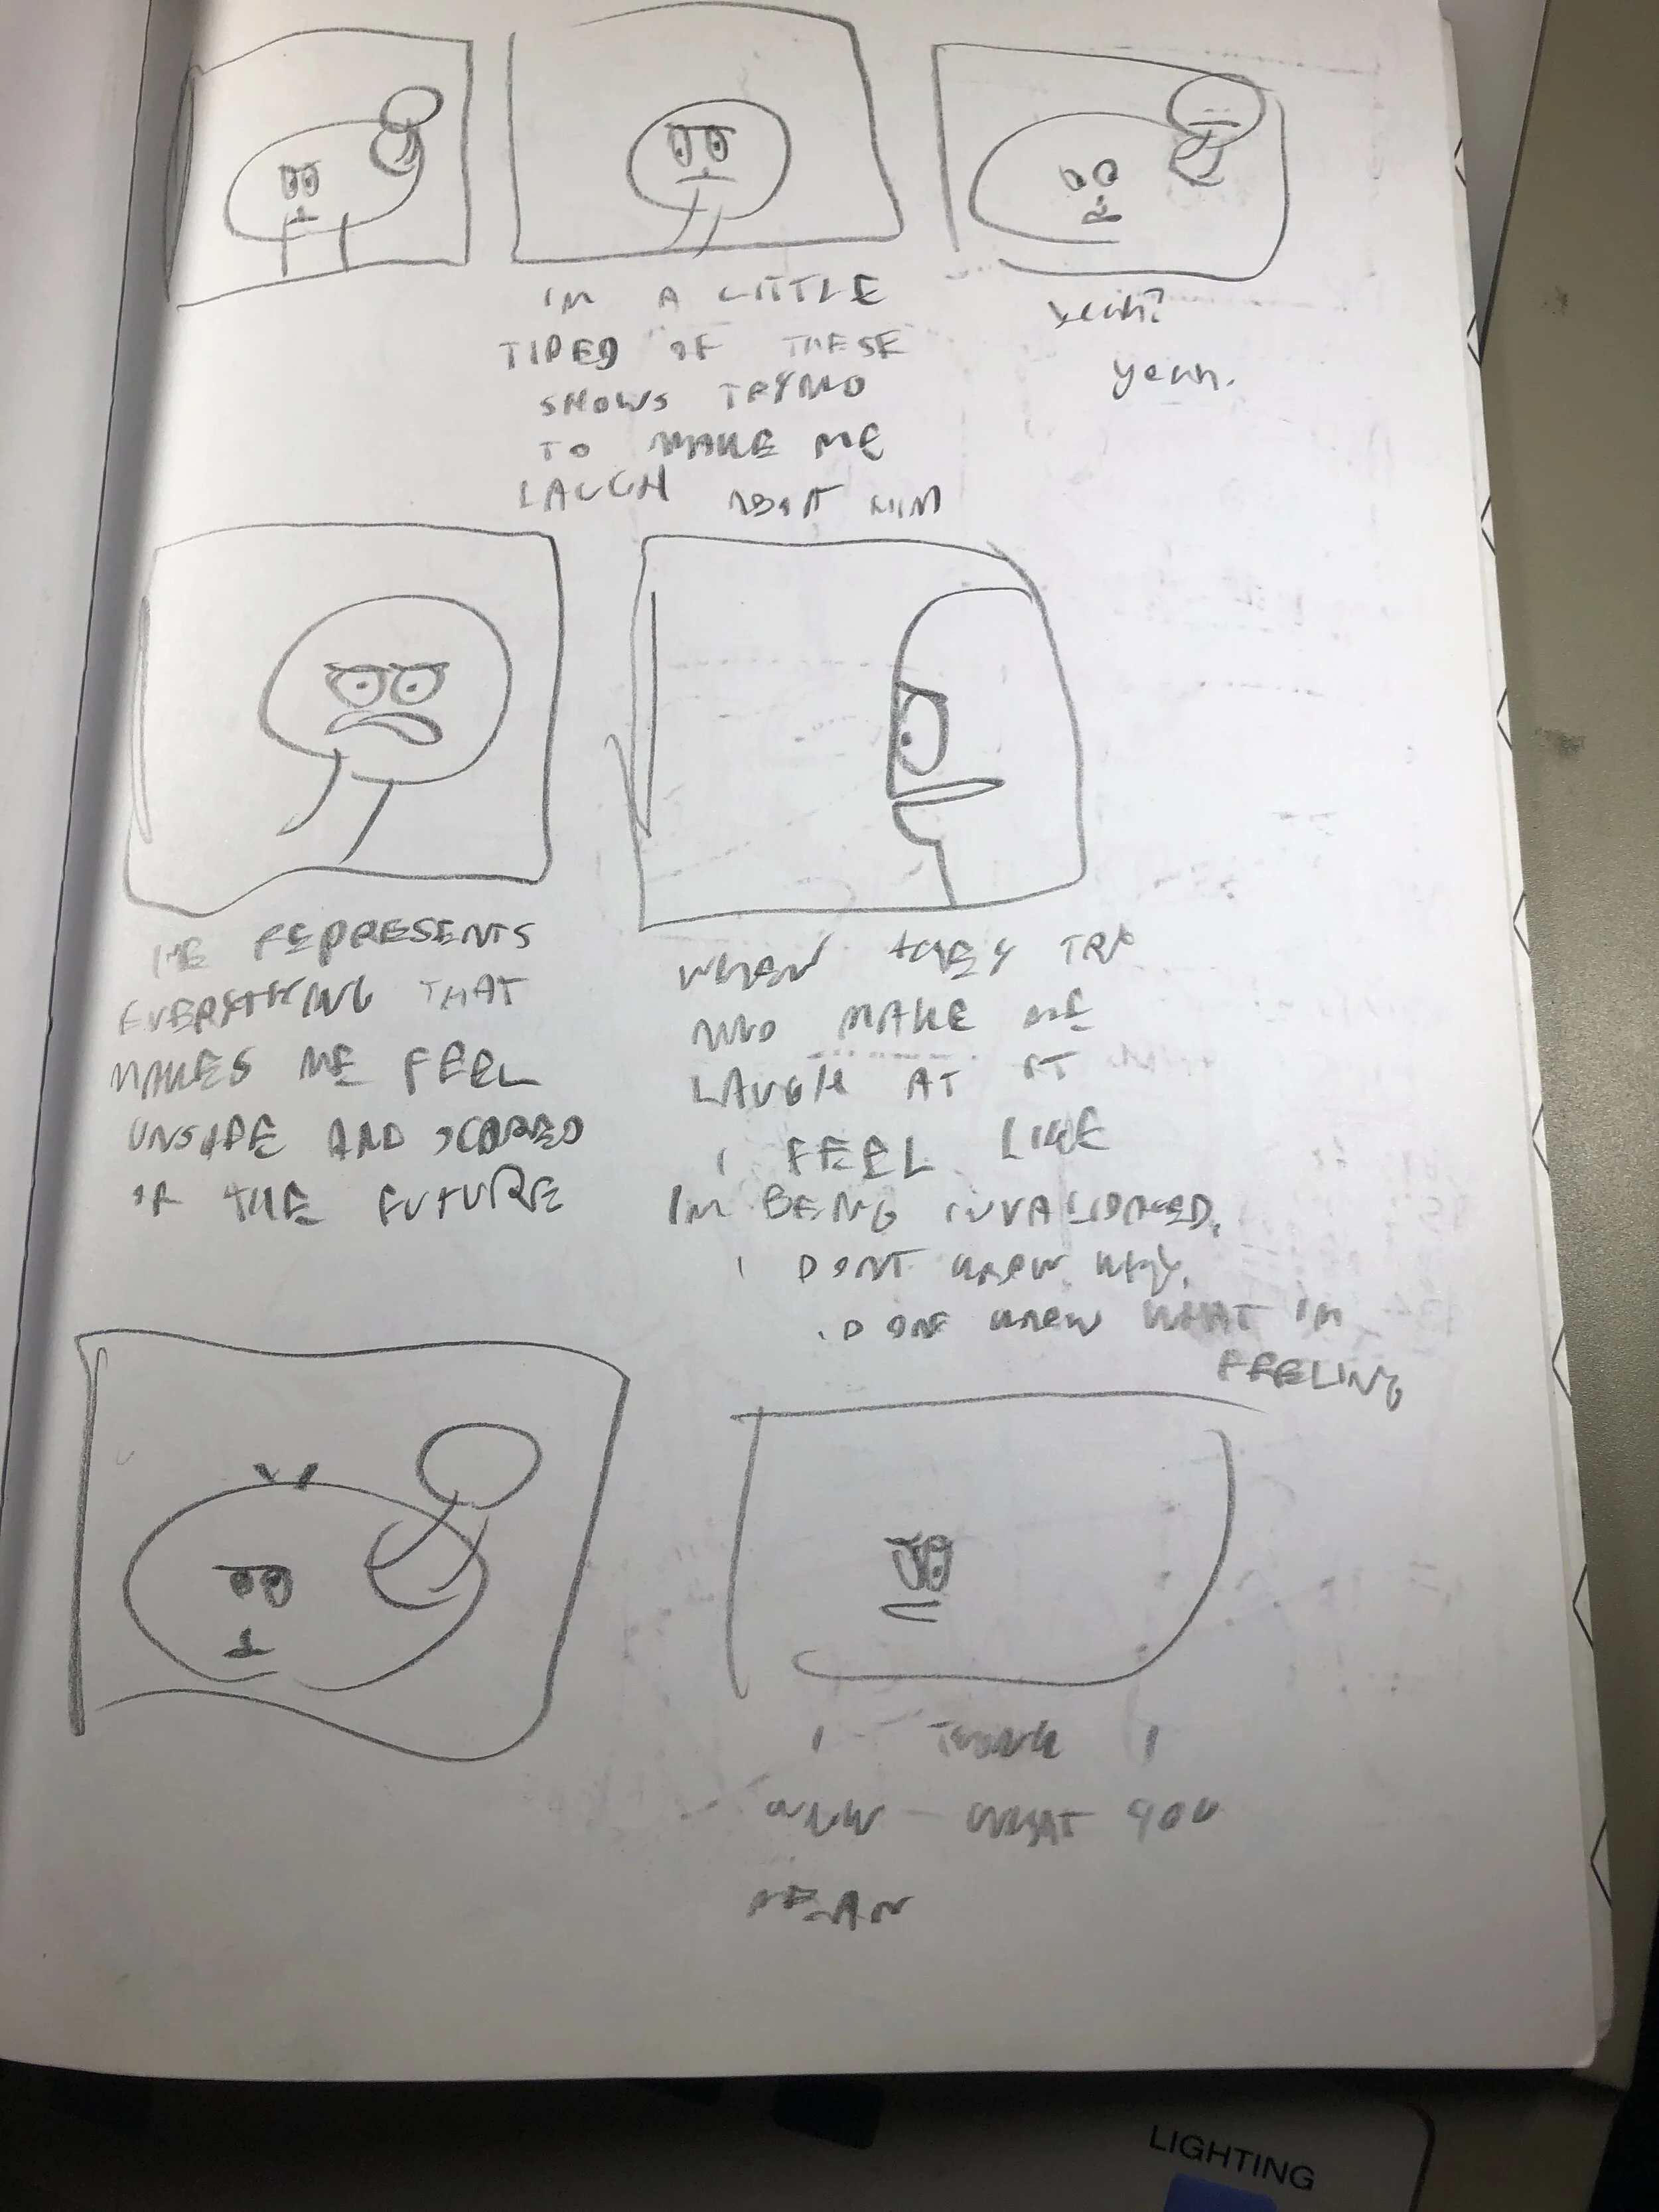 IM A LITTLE
TIRED OF THESE
SHOWS TRYING
TO MAKE ME
LAUGH ABOUT HIM
yeah?
yeah.
HE REPRESENTS
EVERYTHING THAT
MAKES ME FEEL
UNSAFE AND SCARED
OF THE FUTURE
WHEN THEY TRY
AND MAKE ME
LAUGH AT IT
I FEEL LIKE
IM BEING INVALIDATED.
I DONT KNOW WHY.
I DONT KNOW WHAT IM
FEELING
I THINK I
KNOW WHAT YOU
MEAN
LIGHTING